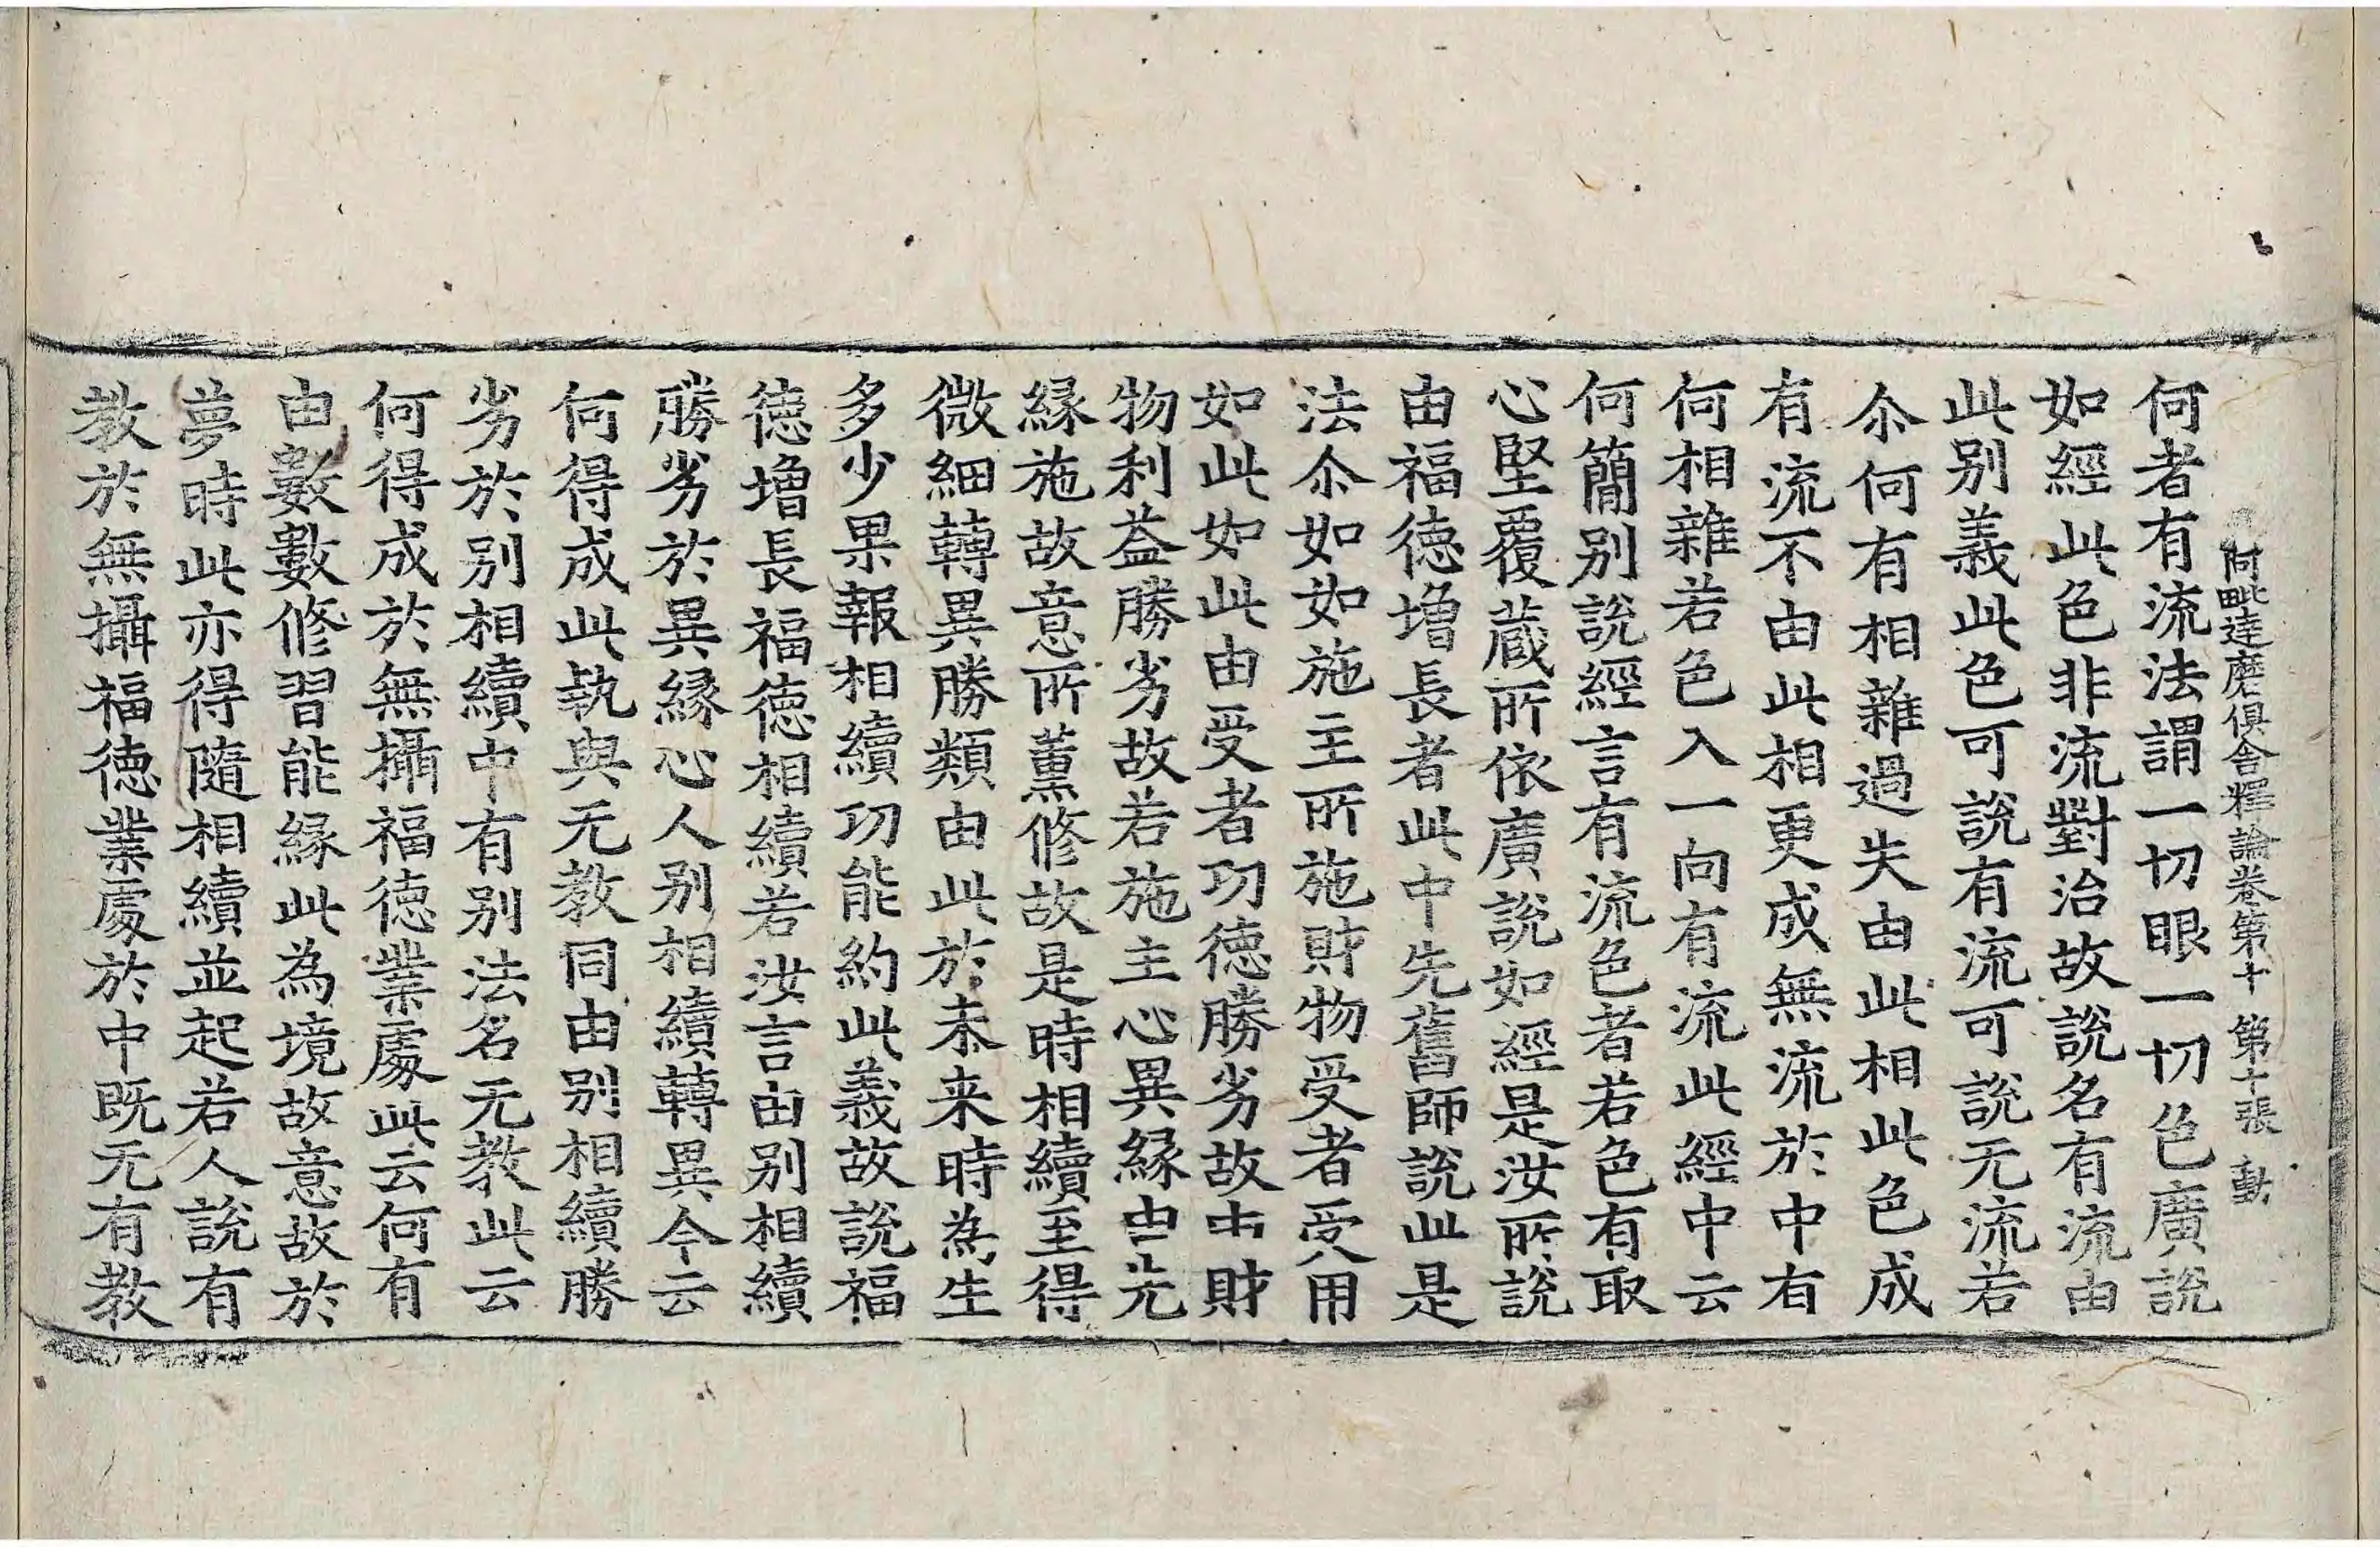 阿毗達磨俱舍釋論卷第十 第十張 動
何者有流法謂一切眼一切色廣說
如經此色非流對治故說名有流由
此別義此色可說有流可說无流若
尒何有相雜過失由此相此色成
有流不由此相更成無流於中有
何相雜若色入一向有流此經中云
何簡別說經言有流色者若色有取
心堅覆蔵所依廣說如經是汝所說
由福德增長者此中先舊師說此是
法尒如如施主所施財物受者受用
如此如此由受者功德勝劣故由財
物利益勝劣故若施主心異緣由先
緣施故意所薰修故是時相續至得
微細轉異勝類由此於未来時為生
多少果報相續功能約此義故說福
德增長福德相續若汝言由別相續
勝劣於異緣心人別相續轉異今云
何得成此執與无教同由別相續勝
劣於別相續中有別法名元教此云
何得成於無攝福德業處此云何有
由數數修習能緣此為境故意故於
夢時此亦得隨相續並起若人說有
教於無攝福德業處於中既无有教